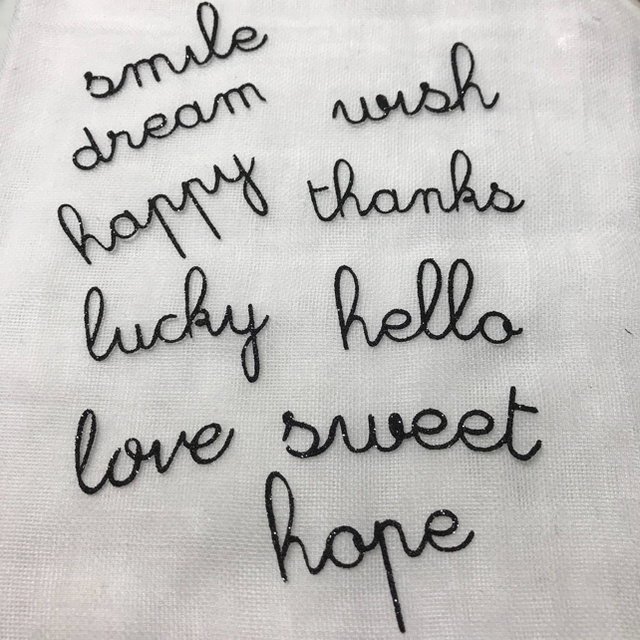 smile
dream wish
happy thanks
lucky hello
love sweet
hope